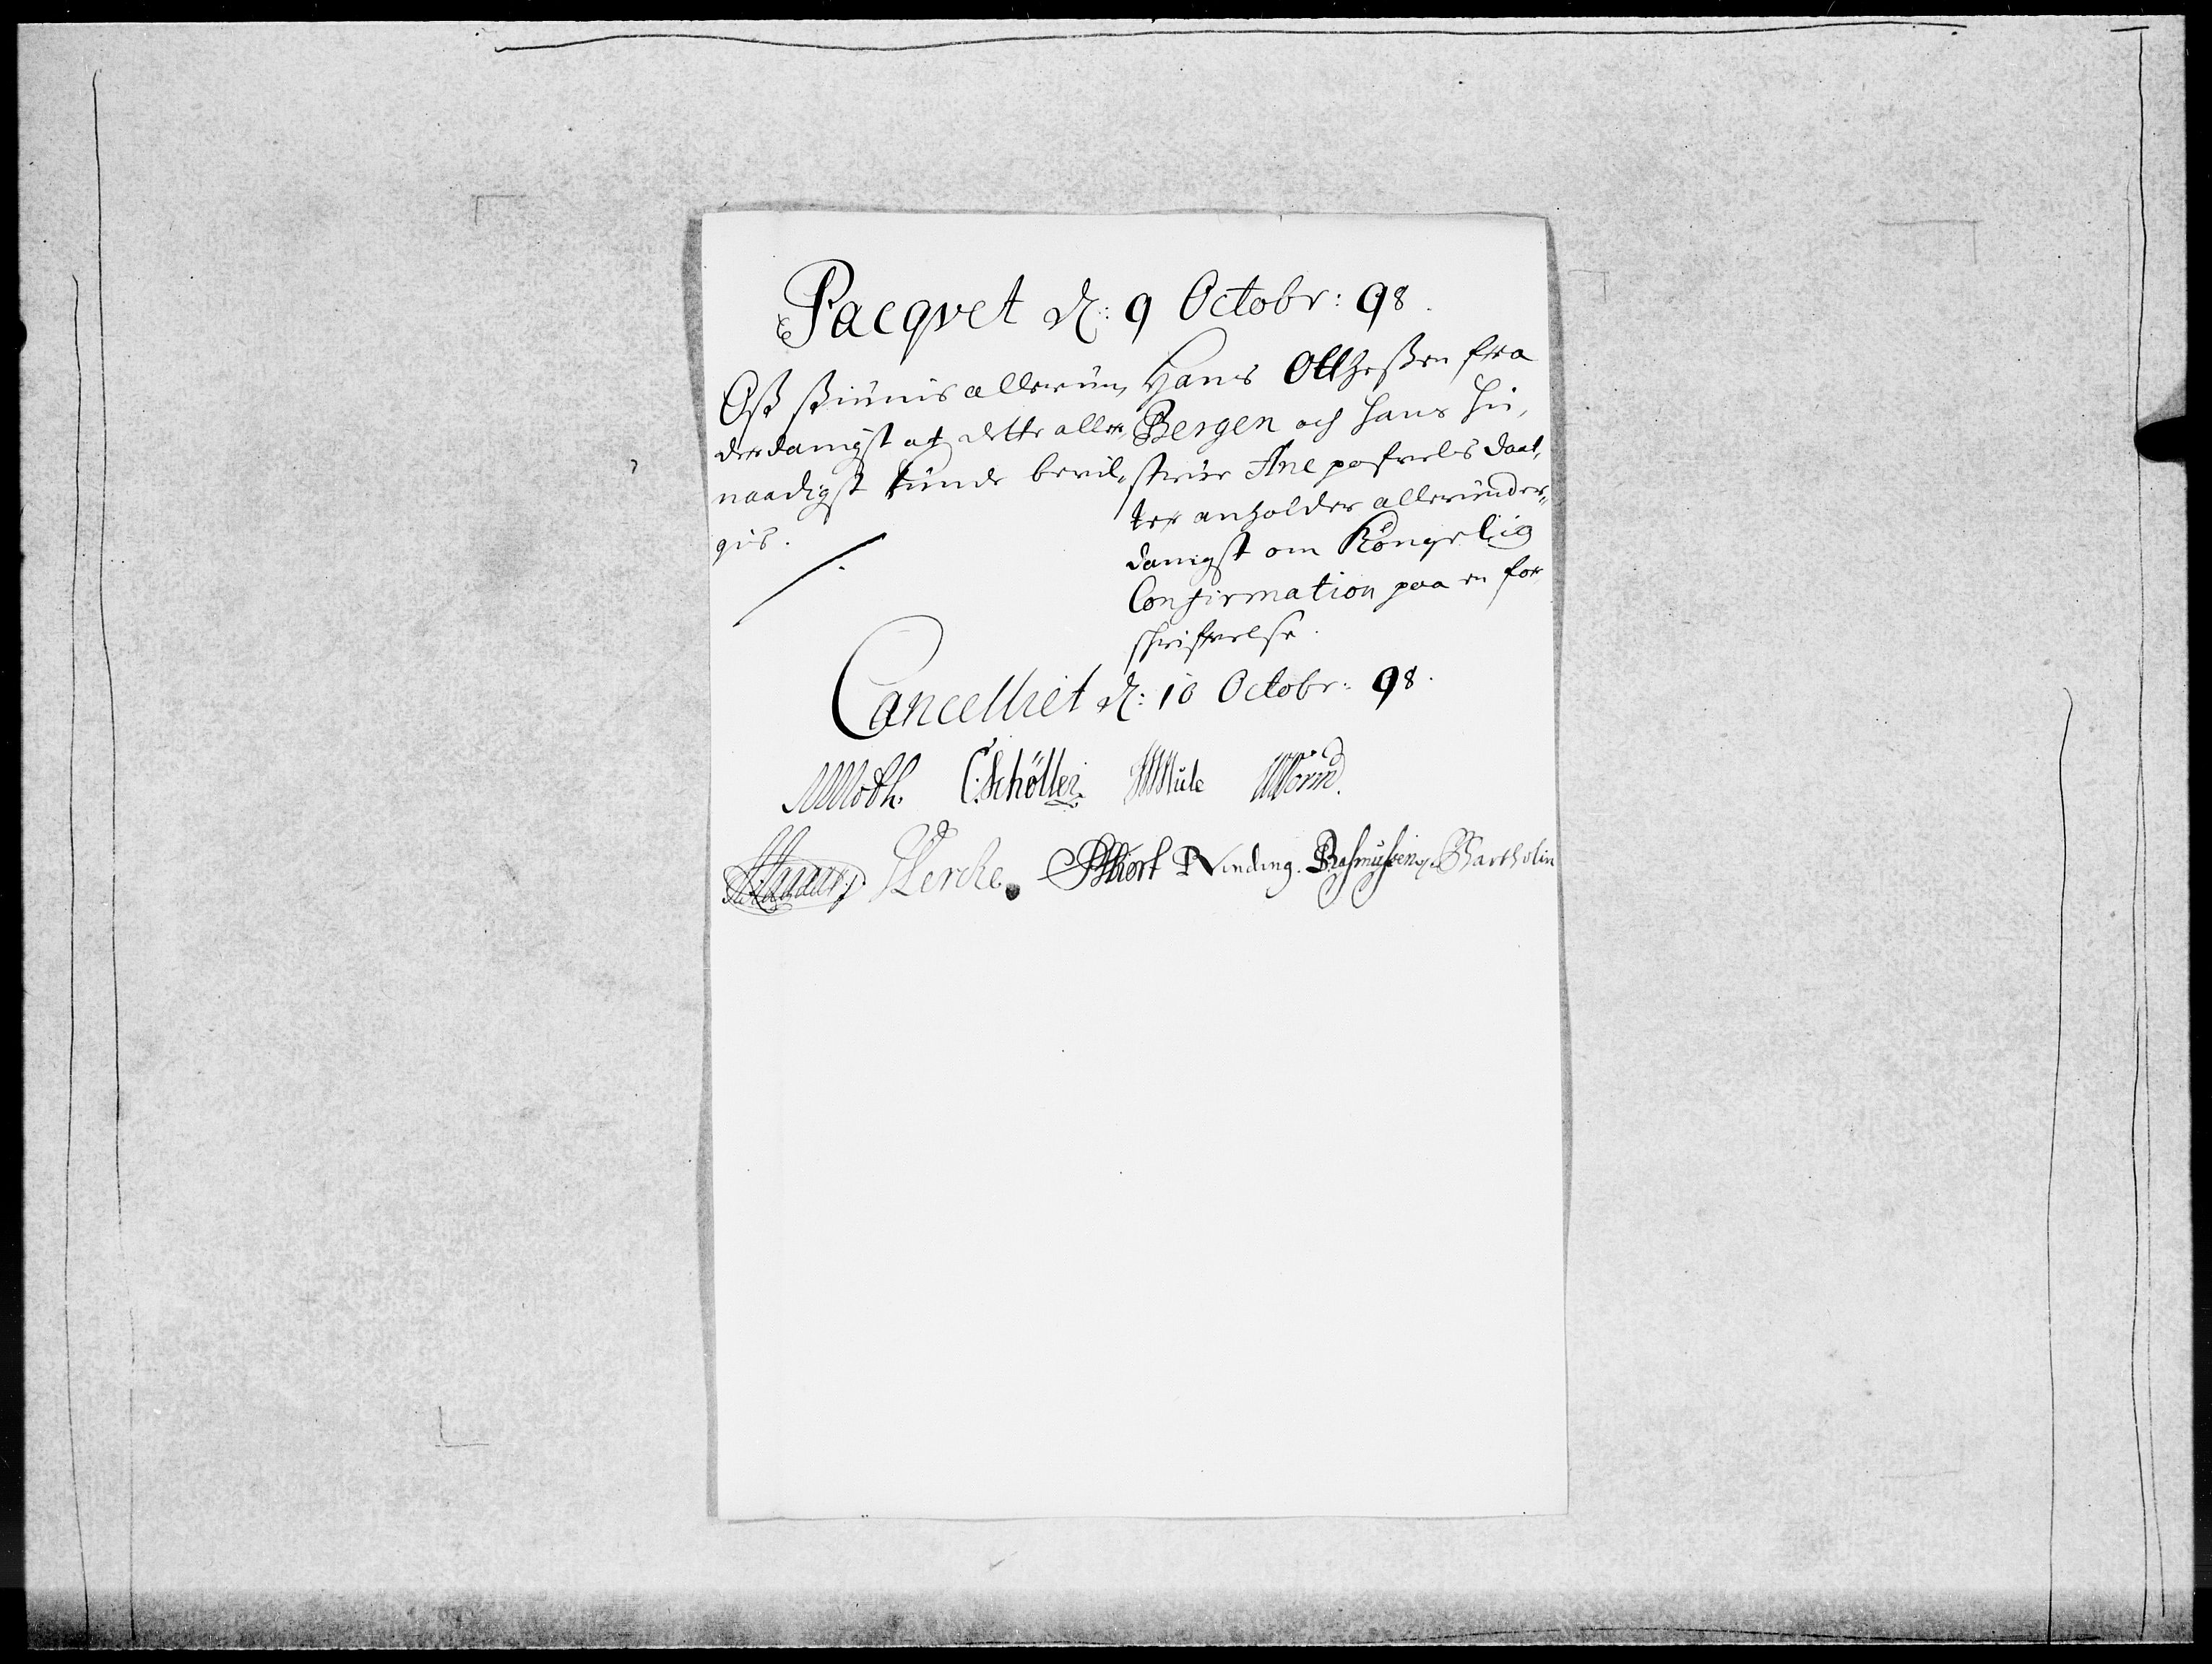 Pacqvet d: 9 Octobr: 98.
Oss siunis allerun,
derdanigst at dette aller,
naadigst kunde bevil,
gis.
Hans Otthessen fra
Bergen och hans hu,
strue Ane datt,
ter anholder allerunder,
danigst om Kongelig
Confirmation paa en for
schrifvelse.
Cancelliet d: 10 Octobr: 98.
MMoth. C:Schöller. Mule Worm.
Lercke. Hiort Vinding. Rasmussen. Bartholin